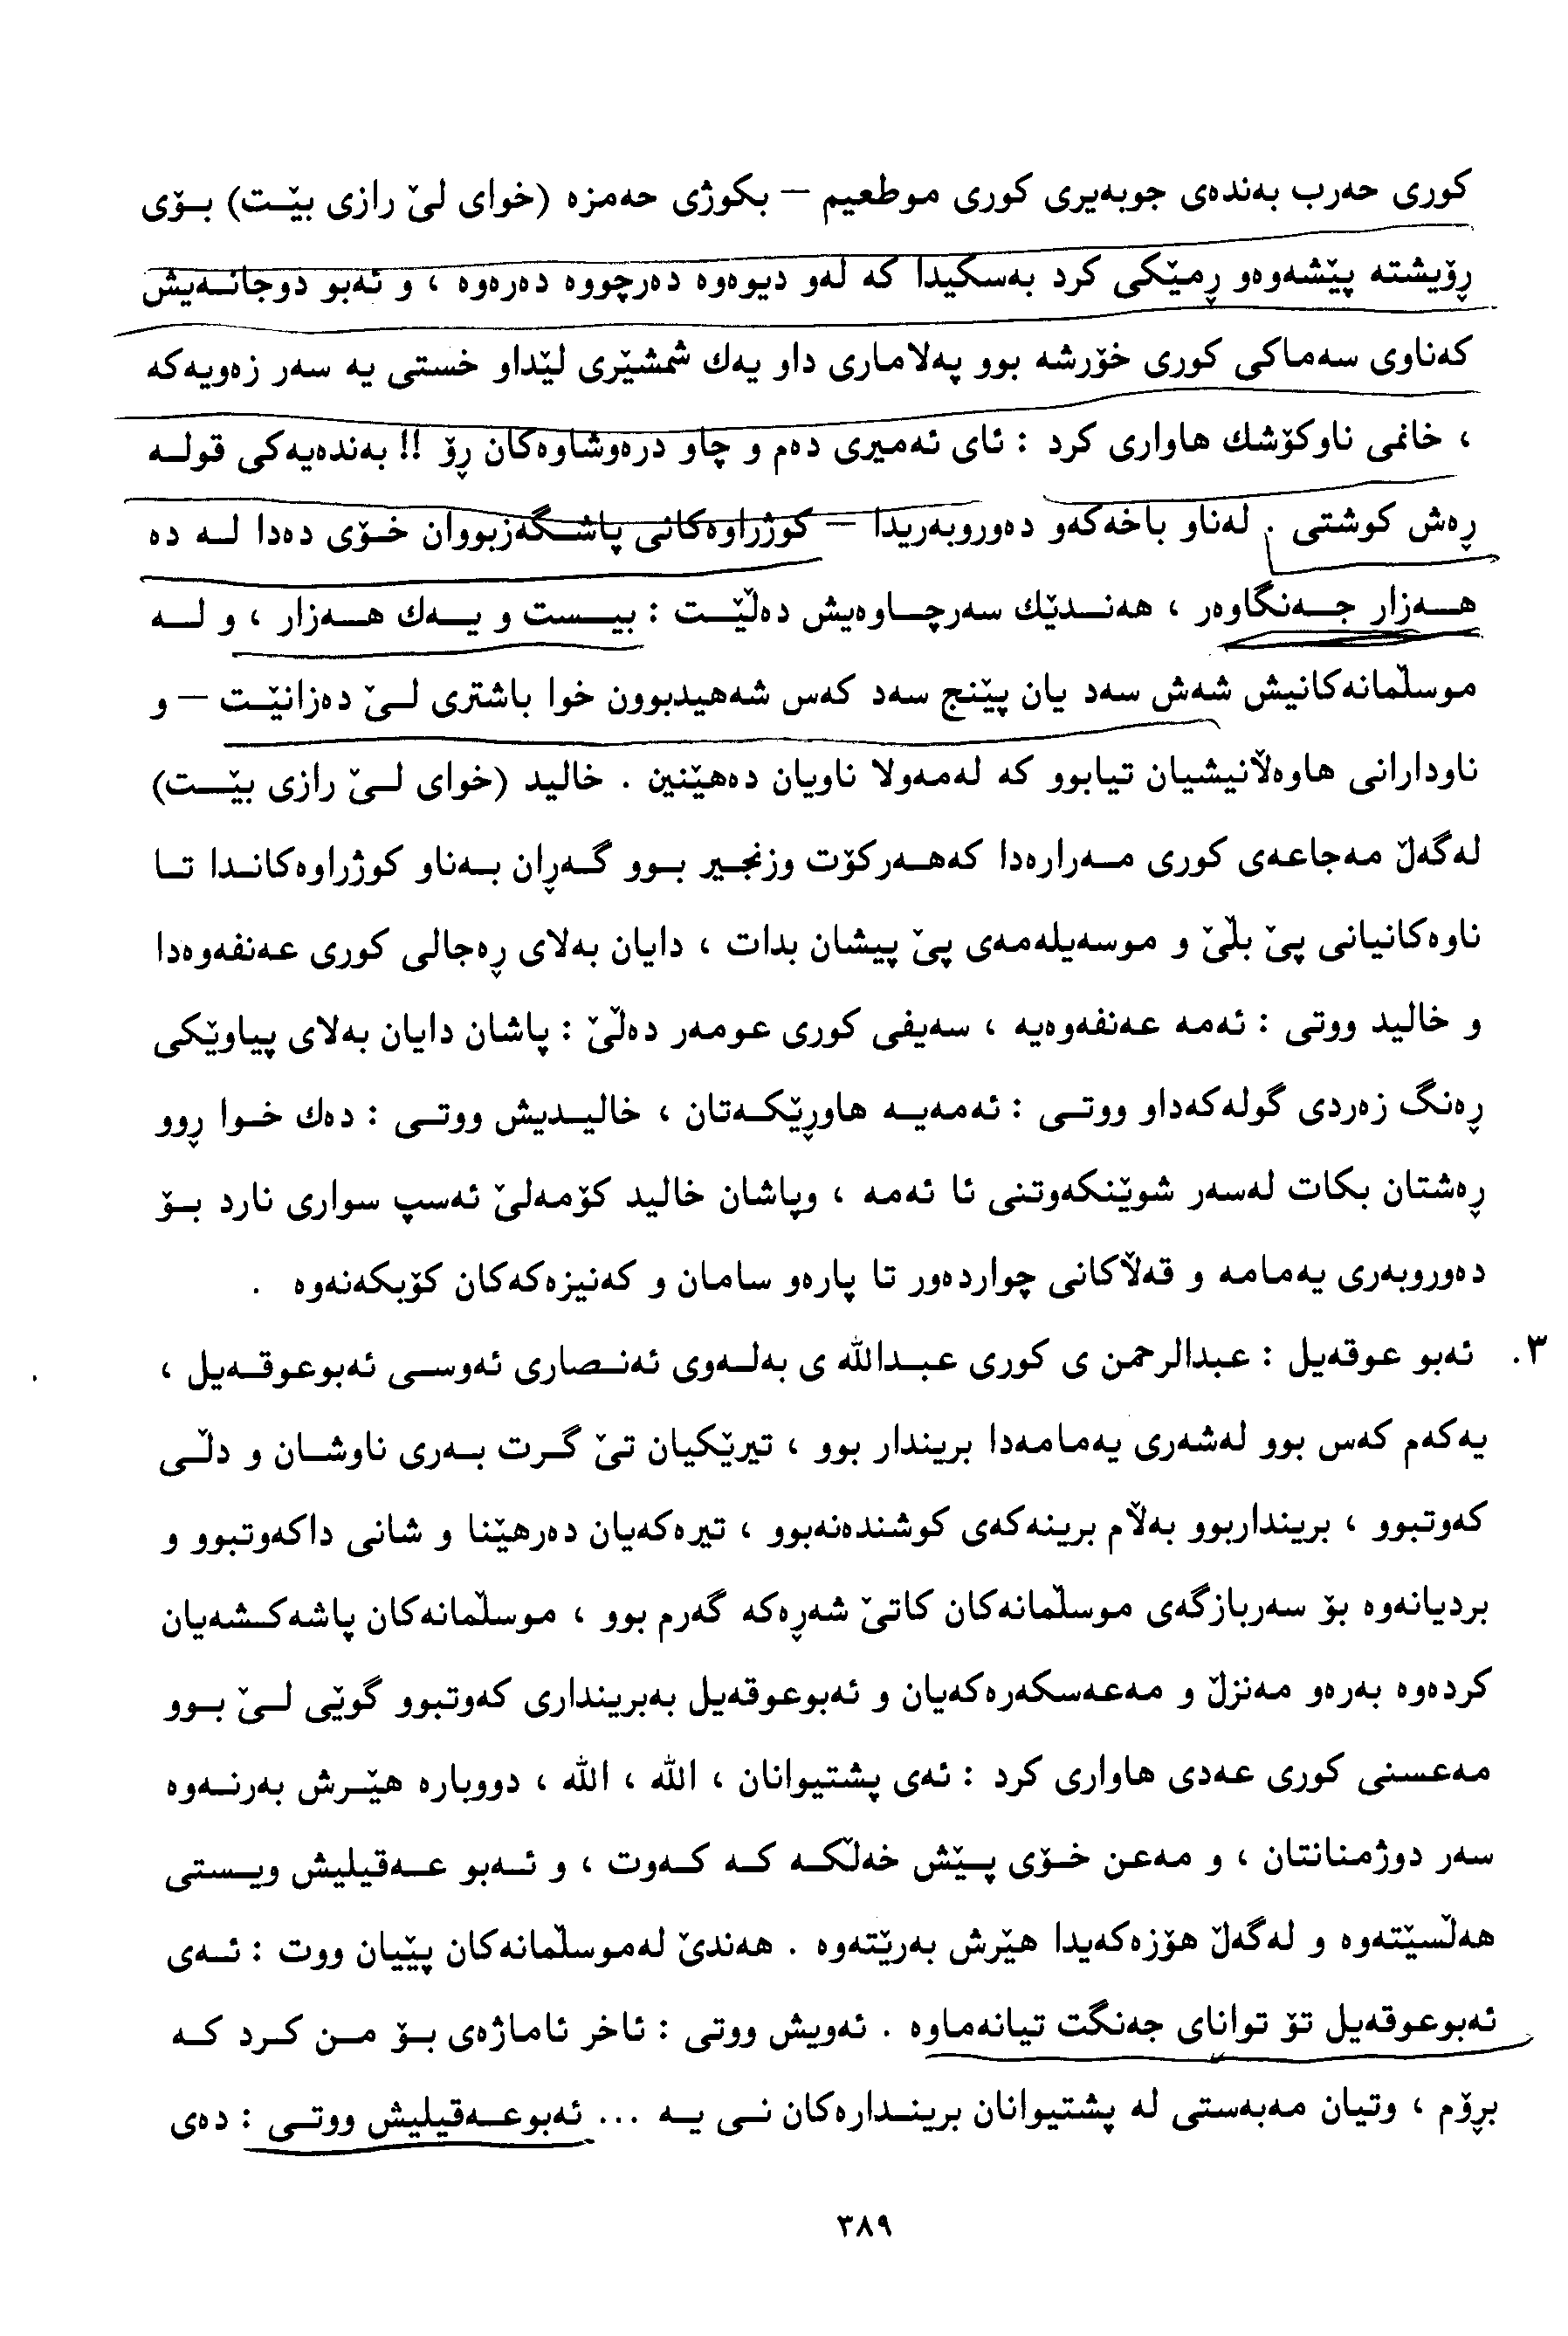 کوری حەرب بەندەی جوبەیری کوری موطعیم – بکوژی حەمزە (خوای لێ رازی بێت) بۆی
ڕۆیشتە پێشەوەو ڕمێکی کرد بەسکیدا کە لەو دیوەوە دەرچووە دەرەوە ، و ئەبو دوجانەیش
کەناوی سەماکی کوری خۆرشە بوو پەلاماری داو یەك شمشێری لێداو خستی یە سەر زەویەکە
، خانمی ناوکۆشك هاواری کرد : ئای ئەمیری دەم و چاو درەوشاوەکان ڕۆ !! بەندەیەکی قولە
ڕەش کوشتی . لەناو باخەکەو دەوروبەریدا – کوژراوەکانی پاشگەزبووان خۆی دەدا لە دە
هەزار جەنگاوەر ، هەندێك سەرچاوەیش دەڵێت : بیست و یەك هەزار ، و لە
موسڵمانەکانیش شەش سەد یان پێنج سەد کەس شەهیدبوون خوا باشتری لێ دەزانێت – و
ناودارانی هاوەڵانیشیان تیابوو کە لەمەولا ناویان دەهێنین . خالید (خوای لێ رازی بێت)
لەگەڵ مەجاعەی کوری مەرارەدا کەهەرکۆت وزنجیر بوو گەڕان بەناو کوژراوەکاندا تا
ناوەکانیانی پێ بڵێ و موسەیلەمەی پێ پیشان بدات ، دایان بەلای ڕەجالی کوری عەنفەوەدا
و خالید ووتی : ئەمە عەنفەوەیە ، سەیفی کوری عومەر دەڵێ : پاشان دایان بەلای پیاوێکی
ڕەنگ زەردی گولەکەداو ووتی : ئەمەیە هاوڕێکەتان ، خالیدیش ووتی : دەك خوا ڕوو
ڕەشتان بکات لەسەر شوێنکەوتنی ئا ئەمە ، وپاشان خالید کۆمەلێ ئەسپ سواری نارد بۆ
دەوروبەری یەمامە و قەڵاکانی چواردەور تا پارەو سامان و کەنیزەکەکان کۆبکەنەوە .
٣. ئەبو عوقەیل : عبدالرحمن ی کوری عبدالله ی بەلەوی ئەنصاری ئەوسی ئەبوعوقەیل ،
یەکەم کەس بوو لەشەری یەمامەدا بریندار بوو ، تیرێکیان تێ گرت بەری ناوشان و دڵی
کەوتبوو ، برینداربوو بەڵام برینەکەی کوشندەنەبوو ، تیرەکەیان دەرهێنا و شانی داکەوتبوو و
بردیانەوە بۆ سەربازگەی موسڵمانەکان کاتێ شەڕەکە گەرم بوو ، موسڵمانەکان پاشەکشەیان
کردەوە بەرەو مەنزڵ و مەعەسکەرەکەیان و ئەبوعوقەیل بەبرینداری کەوتبوو گوێی لێ بوو
مەعسنی کوری عەدی هاواری کرد : ئەی پشتیوانان ، الله ، الله ، دووبارە هێرش بەرنەوە
سەر دوژمنانتان ، و مەعن خۆی پێش خەڵکە کە کەوت ، و ئەبو عەقیلیش ویستی
هەڵسێتەوە و لەگەڵ هۆزەکەیدا هێرش بەرێتەوە . هەندێ لەموسڵمانەکان پێیان ووت : ئەی
ئەبوعوقەیل تۆ توانای جەنگت تیانەماوە . ئەویش ووتی : ئاخر ئاماژەی بۆ من کرد کە
بڕۆم ، وتیان مەبەستی لە پشتیوانان بریندارەکان نی یە ... ئەبوعەقیلیش ووتی : دەی
٣٨٩